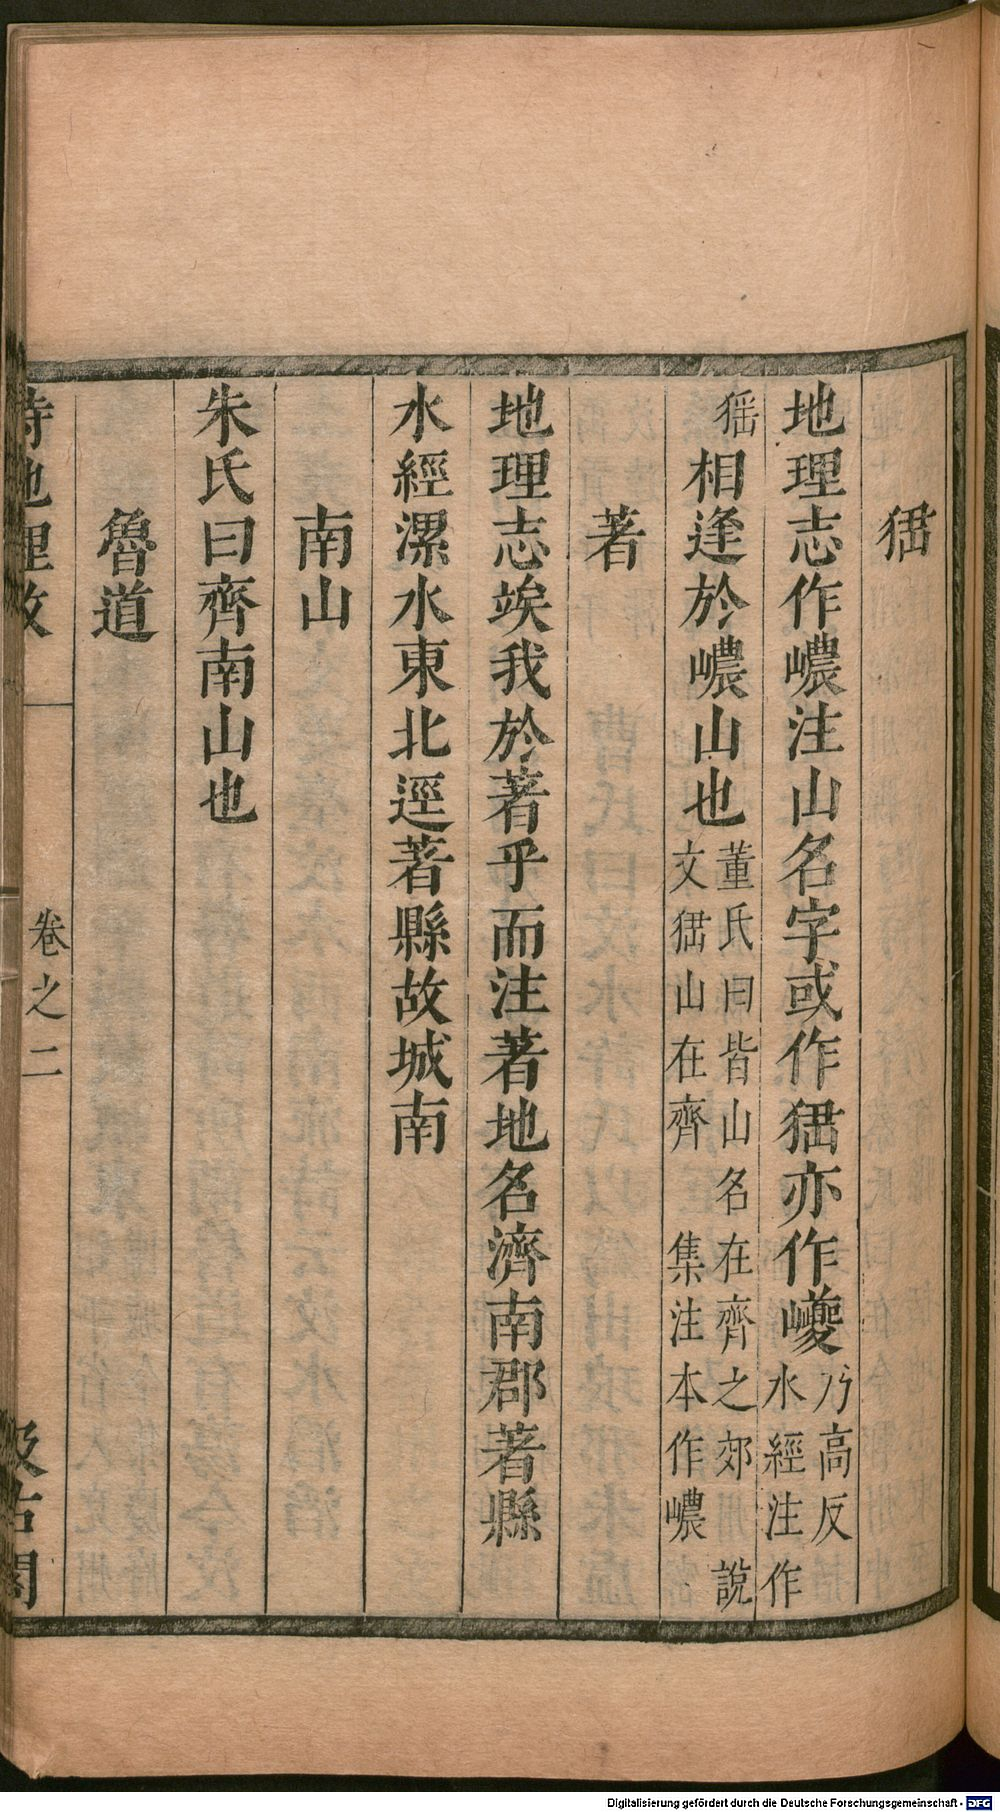 峱
地理志作㠢注山名字或作峱亦作巎乃高反水經注作
猺相逢於㠢山也董氏曰皆山名在齊之郊說文峱山在齊 集注本作㠢
著
地理志竢我於著乎而注著地名濟南郡著縣
水經漯水東北逕著縣故城南
南山
朱氏曰齊南山也
魯道
詩地理攷 卷之二 汲古閣
Digitalisierung gefördert durch die Deutsche Forschungsgemeinschaft - DFG